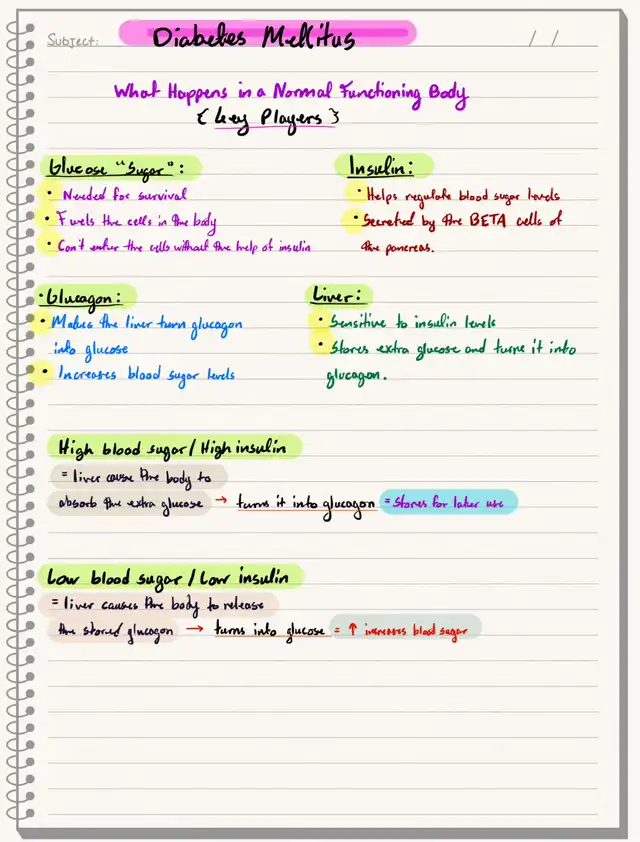 Subject: Diabetes Mellitus / /
What Happens in a Normal Functioning Body
{ Key Players }
Glucose "Sugar":
• Needed for survival
• Fuels the cells in the body
• Can't enter the cells without the help of insulin
Insulin:
• Helps regulate blood sugar levels
• Secreted by the BETA cells of
the pancreas.
• Glucagon:
• Makes the liver turn glucagon
into glucose
• Increases blood sugar levels
Liver:
• Sensitive to insulin levels
• Stores extra glucose and turns it into
glucagon.
High blood sugar / High insulin
= liver cause the body to
absorb the extra glucose → turns it into glucagon = stores for later use
Low blood sugar / Low insulin
= liver causes the body to release
the stored glucagon → turns into glucose = ↑ increases blood sugar